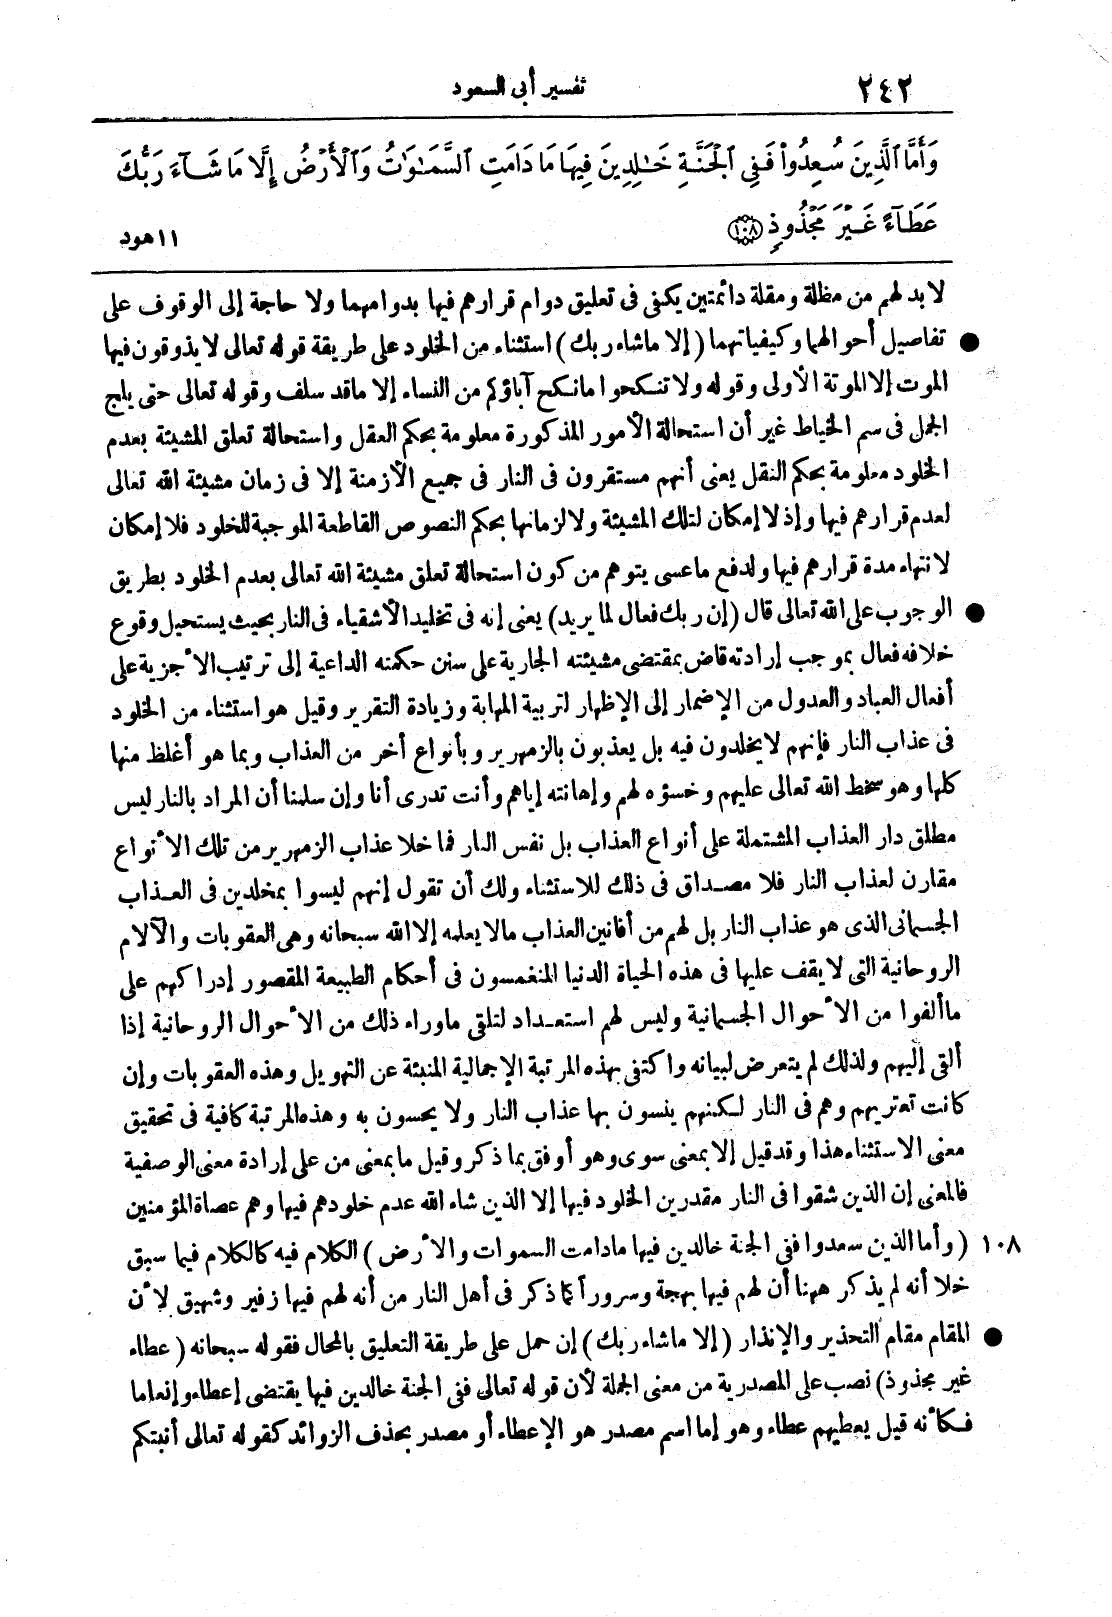 ٢٤٢
تفسير أبى السعود
وَأَمَّا ٱلَّذِينَ سُعِدُوا۟ فَفِى ٱلْجَنَّةِ خَـٰلِدِينَ فِيهَا مَا دَامَتِ ٱلسَّمَـٰوَٰتُ وَٱلْأَرْضُ إِلَّا مَا شَآءَ رَبُّكَ
عَطَآءً غَيْرَ مَجْذُوذٍ ١٠٨
١١ هود
لا بد لهم من مظلة ومقلة دائمتين يكفى فى تعليق دوام قرارهم فيها بدوامهما ولا حاجة إلى الوقوف على
● تفاصيل أحوالهما وكيفياتهما ( إلا ماشاء ربك ) استثناء من الخلود على طريقة قوله تعالى لا يذوقون فيها
الموت إلا الموتة الأولى وقوله ولا تنكحوا مانكح آباؤكم من النساء إلا ماقد سلف وقوله تعالى حتى يلج
الجمل فى سم الخياط غير أن استحالة الأمور المذكورة معلومة بحكم العقل واستحالة تعلق المشيئة بعدم
الخلود معلومة بحكم النقل يعنى أنهم مستقرون فى النار فى جميع الأزمنة إلا فى زمان مشيئة الله تعالى
لعدم قرارهم فيها وإذ لا إمكان لتلك المشيئة ولا لزمانها بحكم النصوص القاطعة الموجبة للخلود فلا إمكان
لانتهاء مدة قرارهم فيها ولدفع ماعسى يتوهم من كون استحالة تعلق مشيئة الله تعالى بعدم الخلود بطريق
● الوجوب على الله تعالى قال ( إن ربك فعال لما يريد ) يعنى إنه فى تخليد الأشقياء فى النار بحيث يستحيل وقوع
خلافه فعال بموجب إرادته قاض بمقتضى مشيئته الجارية على سنن حكمته الداعية إلى ترتيب الأجزية على
أفعال العباد والعدول من الإضمار إلى الإظهار لتربية المهابة وزيادة التقرير وقيل هو استثناء من الخلود
فى عذاب النار فإنهم لا يخلدون فيه بل يعذبون بالزمهرير وبأنواع أخر من العذاب وبما هو أغلظ منها
كلها وهو سخط الله تعالى عليهم وخسؤه لهم وإهانته إياهم وأنت تدرى أنا وإن سلمنا أن المراد بالنار ليس
مطلق دار العذاب المشتملة على أنواع العذاب بل نفس النار فما خلا عذاب الزمهرير من تلك الأنواع
مقارن لعذاب النار فلا مصداق فى ذلك للاستثناء ولك أن تقول إنهم ليسوا بمخلدين فى العذاب
الجسمانى الذى هو عذاب النار بل لهم من أفانين العذاب مالا يعلمه إلا الله سبحانه وهى العقوبات والآلام
الروحانية التى لا يقف عليها فى هذه الحياة الدنيا المنغمسون فى أحكام الطبيعة المقصور إدراكهم على
ما ألفوا من الأحوال الجسمانية وليس لهم استعداد لتلقى ماوراء ذلك من الأحوال الروحانية إذا
ألقى إليهم ولذلك لم يتعرض لبيانه واكتفى بهذه المرتبة الإجمالية المنبئة عن التهويل وهذه العقوبات وإن
كانت تعتريهم وهم فى النار لكنهم ينسون بها عذاب النار ولا يحسون به وهذه المرتبة كافية فى تحقيق
معنى الاستثناء هذا وقد قيل إلا بمعنى سوى وهو أوفق بما ذكر وقيل ما بمعنى من على إرادة معنى الوصفية
فالمعنى إن الذين شقوا فى النار مقدرين الخلود فيها إلا الذين شاء الله عدم خلودهم فيها وهم عصاة المؤمنين
١٠٨ ( وأما الذين سعدوا ففى الجنة خالدين فيها مادامت السموات والأرض ) الكلام فيه كالكلام فيما سبق
خلا أنه لم يذكر ههنا أن لهم فيها بهجة وسروراً كما ذكر فى أهل النار من أنه لهم فيها زفير وشهيق لأن
● المقام مقام التحذير والإنذار ( إلا ماشاء ربك ) إن حمل على طريقة التعليق بالمحال فقوله سبحانه ( عطاء
غير مجذوذ ) نصب على المصدرية من معنى الجملة لأن قوله تعالى ففى الجنة خالدين فيها يقتضى إعطاء وإنعاما
فكأنه قيل يعطيهم عطاء وهو إما اسم مصدر هو الإعطاء أو مصدر بحذف الزوائد كقوله تعالى أنبتكم